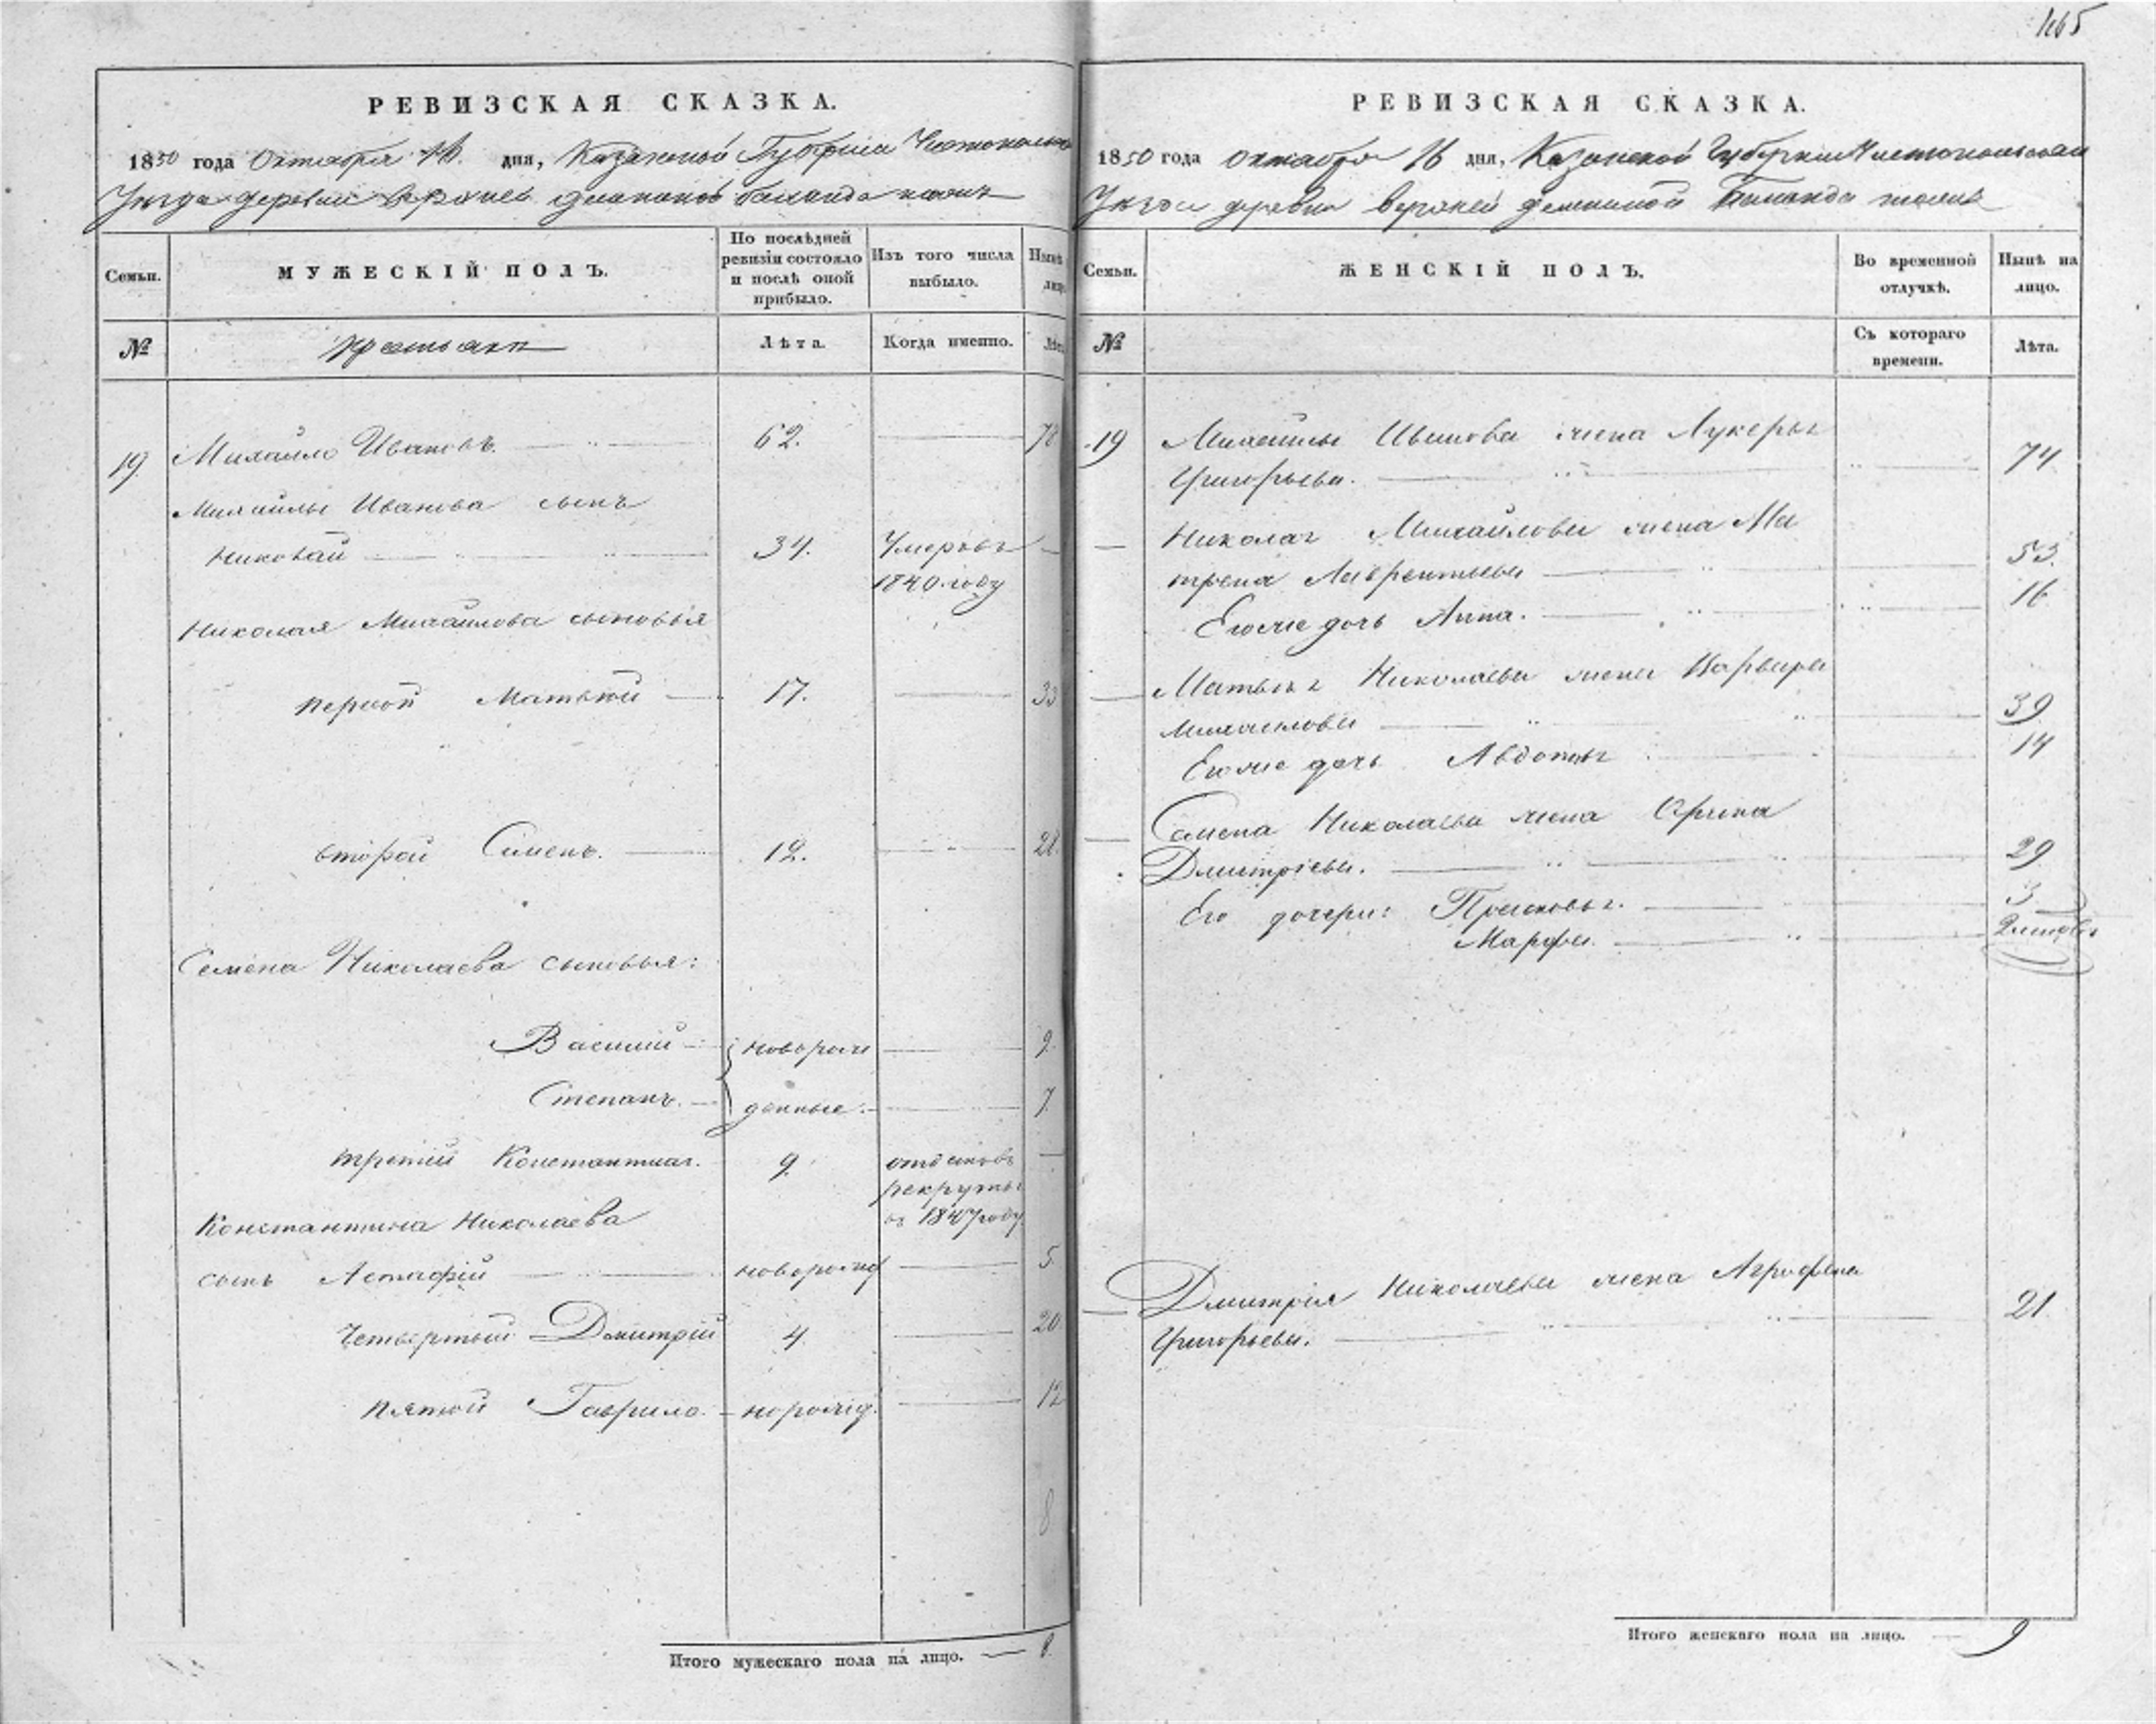 РЕВИЗСКАЯ СКАЗКА.
1850 года Октября 16. дня, Казанской Губернiи Чистопольскаго
Уезда деревни верхней баланда тожъ
Семьи.
МУЖЕСКIЙ ПОЛЪ.
По послѣдней ревизiи состояло и послѣ оной прибыло.
Изъ того числа выбыло.
Нынѣ лицо
№
Крестьяне
Лѣта.
Когда именно.
Лѣта
19. Михайло Ивановъ. 62. 78
Михайлы Иванова сынъ
Николай 34. Умеръ въ
1840. году
Николая Михайлова сыновья
первой Матвей 17. 33
второй Семенъ. 12. 28.
Семена Николаева сыновья:
Василий новорож 9.
Степанъ. денные. 7.
третий Константинъ. 9. отданъ въ
рекруты
въ 1847 году.
Константина Николаева
сынъ Астафiй новорожд 5.
четвертый Дмитрiй 4. 20.
пятой Гаврило. норожд. 12
8
Итого мужескаго пола на лицо. 8.
165
РЕВИЗСКАЯ СКАЗКА.
1850 года октября 16 дня, Казанской Губернiи Чистопольскаго
Уезда деревни верхней Баланда тожъ
Семьи.
ЖЕНСКIЙ ПОЛЪ.
Во временной отлучкѣ.
Нынѣ на лицо.
№
Съ котораго времени.
Лѣта.
19 Михайлы Иванова жена Лукерья
Григорьева. 74.
Николая Михайлова жена Ма
трена Лаврентьева 53.
Егоже дочь Анна. 16
Матвея Николаева жена Варвара
Михайлова 39
Егоже дочь Авдотья 14
Семена Николаева жена Орина
Дмитрiева. 29
Его дочери: Прасковья. 3
Марфа.
Дмитрiя Николаева жена Аграфена
Григорьева. 21.
Итого женскаго пола на лицо. 9